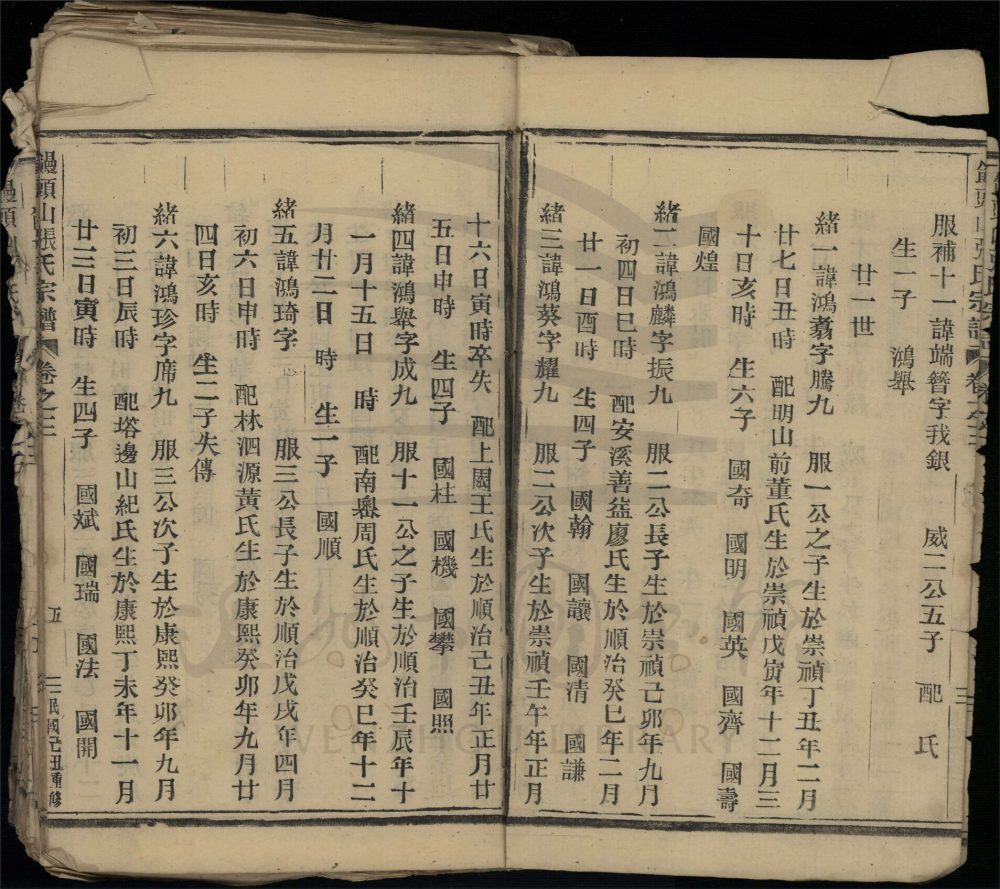 服補十一諱端簪字我銀 威二公五子 配 氏
生一子 鴻舉
廿一世
緒一諱鴻翥字騰九 服一公之子生於崇禎丁丑年二月
廿七日丑時 配明山前董氏生於崇禎戊寅年十二月三
十日亥時 生六子 國奇 國明 國英 國齊 國壽
國煌
緒二諱鴻麟字振九 服二公長子生於崇禎己卯年九月
初四日巳時 配安溪善益廖氏生於順治癸巳年二月
廿一日酉時 生四子 國翰 國讓 國清 國謙
緒三諱鴻葵字耀九 服二公次子生於崇禎壬午年正月
十六日寅時卒失 配上園王氏生於順治己丑年正月廿
五日申時 生四子 國柱 國機 國攀 國照
緒四諱鴻舉字成九 服十一公之子生於順治壬辰年十
一月十五日 時 配南周氏生於順治癸巳年十二
月廿二日 時 生一子 國順
緒五諱鴻琦字 服三公長子生於順治戊戌年四月
初六日申時 配林泗源黃氏生於康熙癸卯年九月廿
四日亥時 生二子失傳
緒六諱鴻珍字席九 服三公次子生於康熙癸卯年九月
初三日辰時 配塔邊山紀氏生於康熙丁未年十一月
廿二日寅時 生四子 國斌 國瑞 國法 國開
饅頭山張氏宗譜 卷之三 五 民國己丑重修